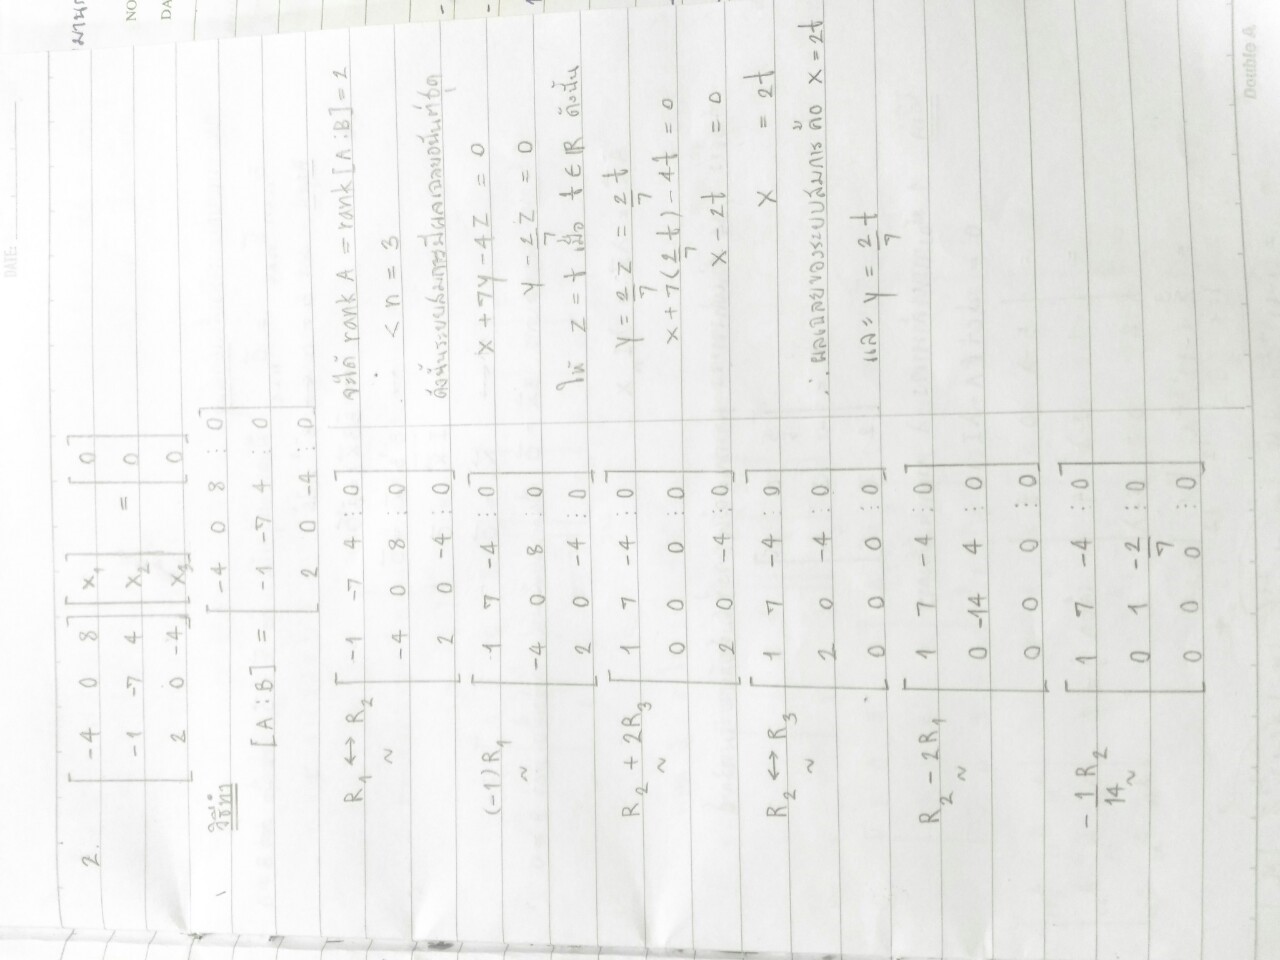 DATE:
2. [ -4 0 8 ] [ x₁ ] = [ 0 ]
[ -1 -7 4 ] [ x₂ ] [ 0 ]
[ 2 0 -4 ] [ x₃ ] [ 0 ]
วิธีทำ [ -4 0 8 ⋮ 0 ]
[A ⋮ B] = [ -1 -7 4 ⋮ 0 ]
[ 2 0 -4 ⋮ 0 ]
R₁ ↔ R₂ [ -1 -7 4 ⋮ 0 ]
~ [ -4 0 8 ⋮ 0 ]
[ 2 0 -4 ⋮ 0 ]
(-1)R₁ [ 1 7 -4 ⋮ 0 ]
~ [ -4 0 8 ⋮ 0 ]
[ 2 0 -4 ⋮ 0 ]
R₂ + 2R₃ [ 1 7 -4 ⋮ 0 ]
~ [ 0 0 0 ⋮ 0 ]
[ 2 0 -4 ⋮ 0 ]
R₂ ↔ R₃ [ 1 7 -4 ⋮ 0 ]
~ [ 2 0 -4 ⋮ 0 ]
[ 0 0 0 ⋮ 0 ]
R₂ - 2R₁ [ 1 7 -4 ⋮ 0 ]
~ [ 0 -14 4 ⋮ 0 ]
[ 0 0 0 ⋮ 0 ]
-1/14 R₂ [ 1 7 -4 ⋮ 0 ]
~ [ 0 1 -2/7 ⋮ 0 ]
[ 0 0 0 ⋮ 0 ]
จะได้ rank A = rank [A ⋮ B] = 2
< n = 3
ดังนั้นระบบสมการมีผลเฉลยอนันต์ชุด
x + 7y - 4z = 0
y - 2/7 z = 0
ให้ z = t เมื่อ t ∈ ℝ ดังนั้น
y = 2/7 z = 2/7 t
x + 7(2/7 t) - 4t = 0
x - 2t = 0
x = 2t
∴ ผลเฉลยของระบบสมการ คือ x = 2t
และ y = 2/7 t
NO
DA
Double A